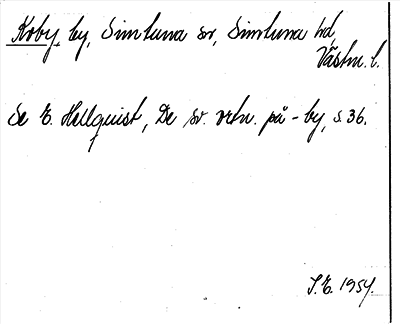 Kroby, by, Simtuna sn, Simtuna hd,
Västm. l.
Se E. Hellquist, De sv. ortn. på -by, s. 36.
S.E. 1954.